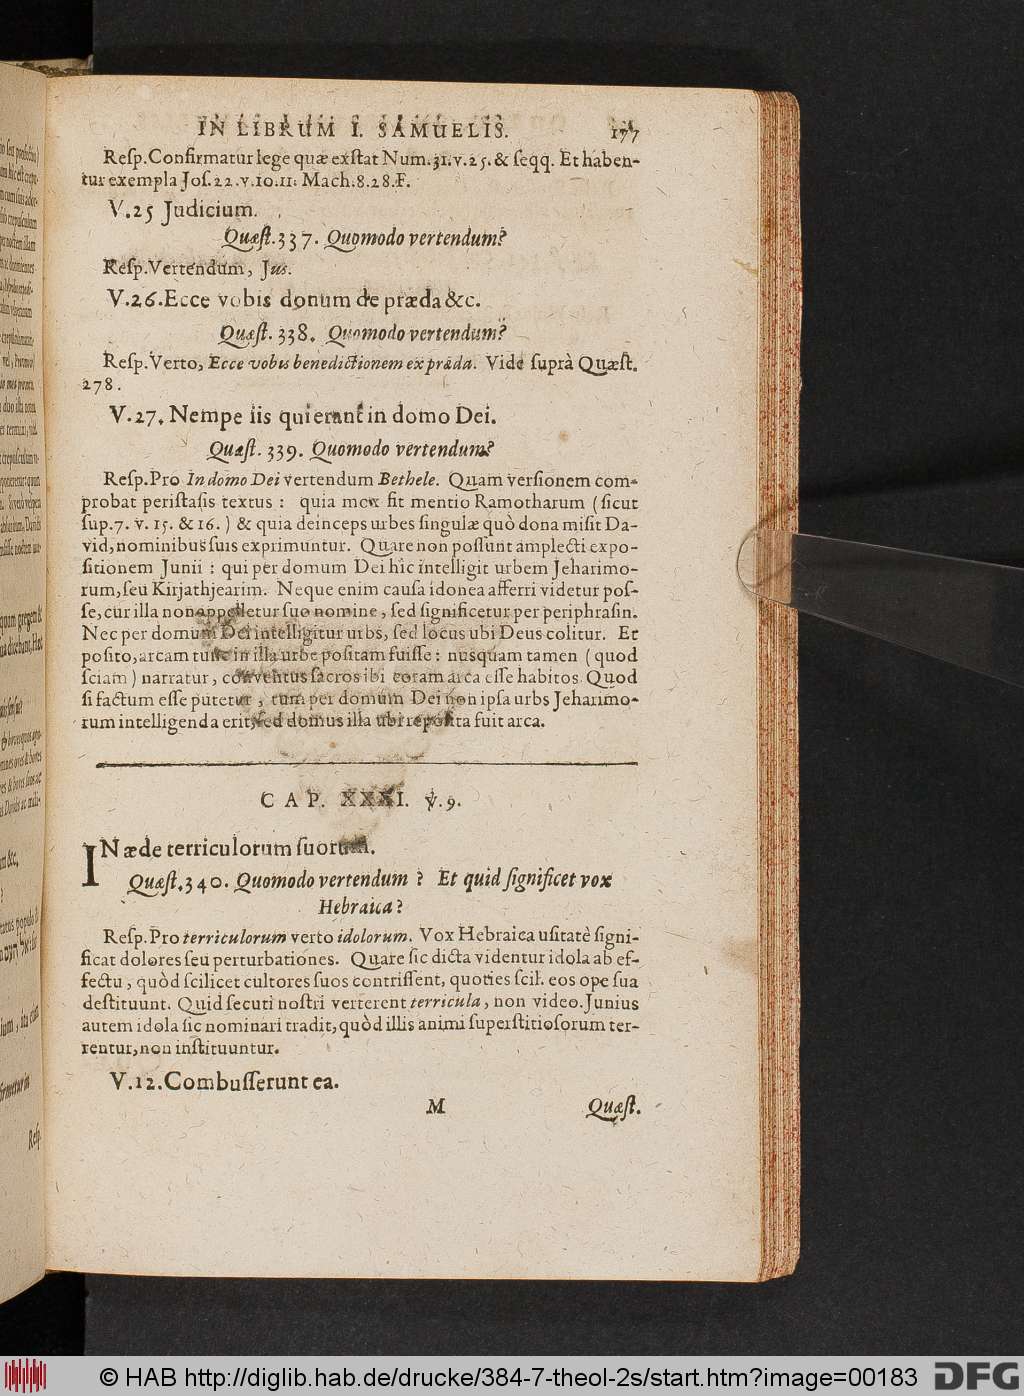 IN LIBRUM I. SAMUELIS. 177
Reſp. Confirmatur lege quæ exſtat Num. 31. v. 25. & ſeqq. Et haben-
tur exempla Joſ. 22. v. 10. 11. Mach. 8. 28. F.
V. 25 Judicium.
Quæſt. 337. Quomodo vertendum?
Reſp. Vertendum, Jus.
V. 26. Ecce vobis donum de præda &c.
Quæſt. 338. Quomodo vertendum?
Reſp. Verto, Ecce vobis benedictionem ex præda. Vide ſuprà Quæſt.
278.
V. 27. Nempe iis qui erant in domo Dei.
Quæſt. 339. Quomodo vertendum?
Reſp. Pro In domo Dei vertendum Bethele. Quam verſionem com-
probat periſtaſis textus : quia mox fit mentio Ramotharum (ſicut
ſup. 7. v. 15. & 16.) & quia deinceps urbes ſingulæ quò dona miſit Da-
vid, nominibus ſuis exprimuntur. Quare non poſſunt amplecti expo-
ſitionem Junii : qui per domum Dei hîc intelligit urbem Jeharimo-
rum, ſeu Kirjathjearim. Neque enim cauſa idonea afferri videtur poſ-
ſe, cur illa non appelletur ſuo nomine, ſed ſignificetur per periphraſin.
Nec per domum Dei intelligitur urbs, ſed locus ubi Deus colitur. Et
poſito, arcam tunc in illa urbe poſitam fuiſſe : nusquam tamen (quod
ſciam) narratur, conventus ſacros ibi coram arca eſſe habitos. Quod
ſi factum eſſe putetur, tum per domum Dei non ipſa urbs Jeharimo-
rum intelligenda erit, ſed domus illa ubi repoſita fuit arca.
CAP. XXXI. v. 9.
IN æde terriculorum ſuorum.
Quæſt. 340. Quomodo vertendum ? Et quid ſignificet vox
Hebraica?
Reſp. Pro terriculorum verto idolorum. Vox Hebraica uſitatè ſigni-
ficat dolores ſeu perturbationes. Quare ſic dicta videntur idola ab ef-
fectu, quòd ſcilicet cultores ſuos contriſſent, quoties ſcil. eos ope ſua
deſtituunt. Quid ſecuti noſtri verterent terricula, non video. Junius
autem idola ſic nominari tradit, quòd illis animi ſuperſtitioſorum ter-
rentur, non inſtituuntur.
V. 12. Combuſſerunt ea.
M Quæſt.
© HAB http://diglib.hab.de/drucke/384-7-theol-2s/start.htm?image=00183 DFG